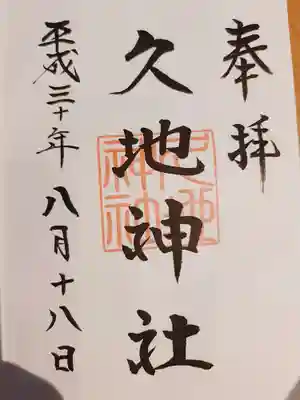 奉拝
久地神社
平成三十年八月十八日
久地神社